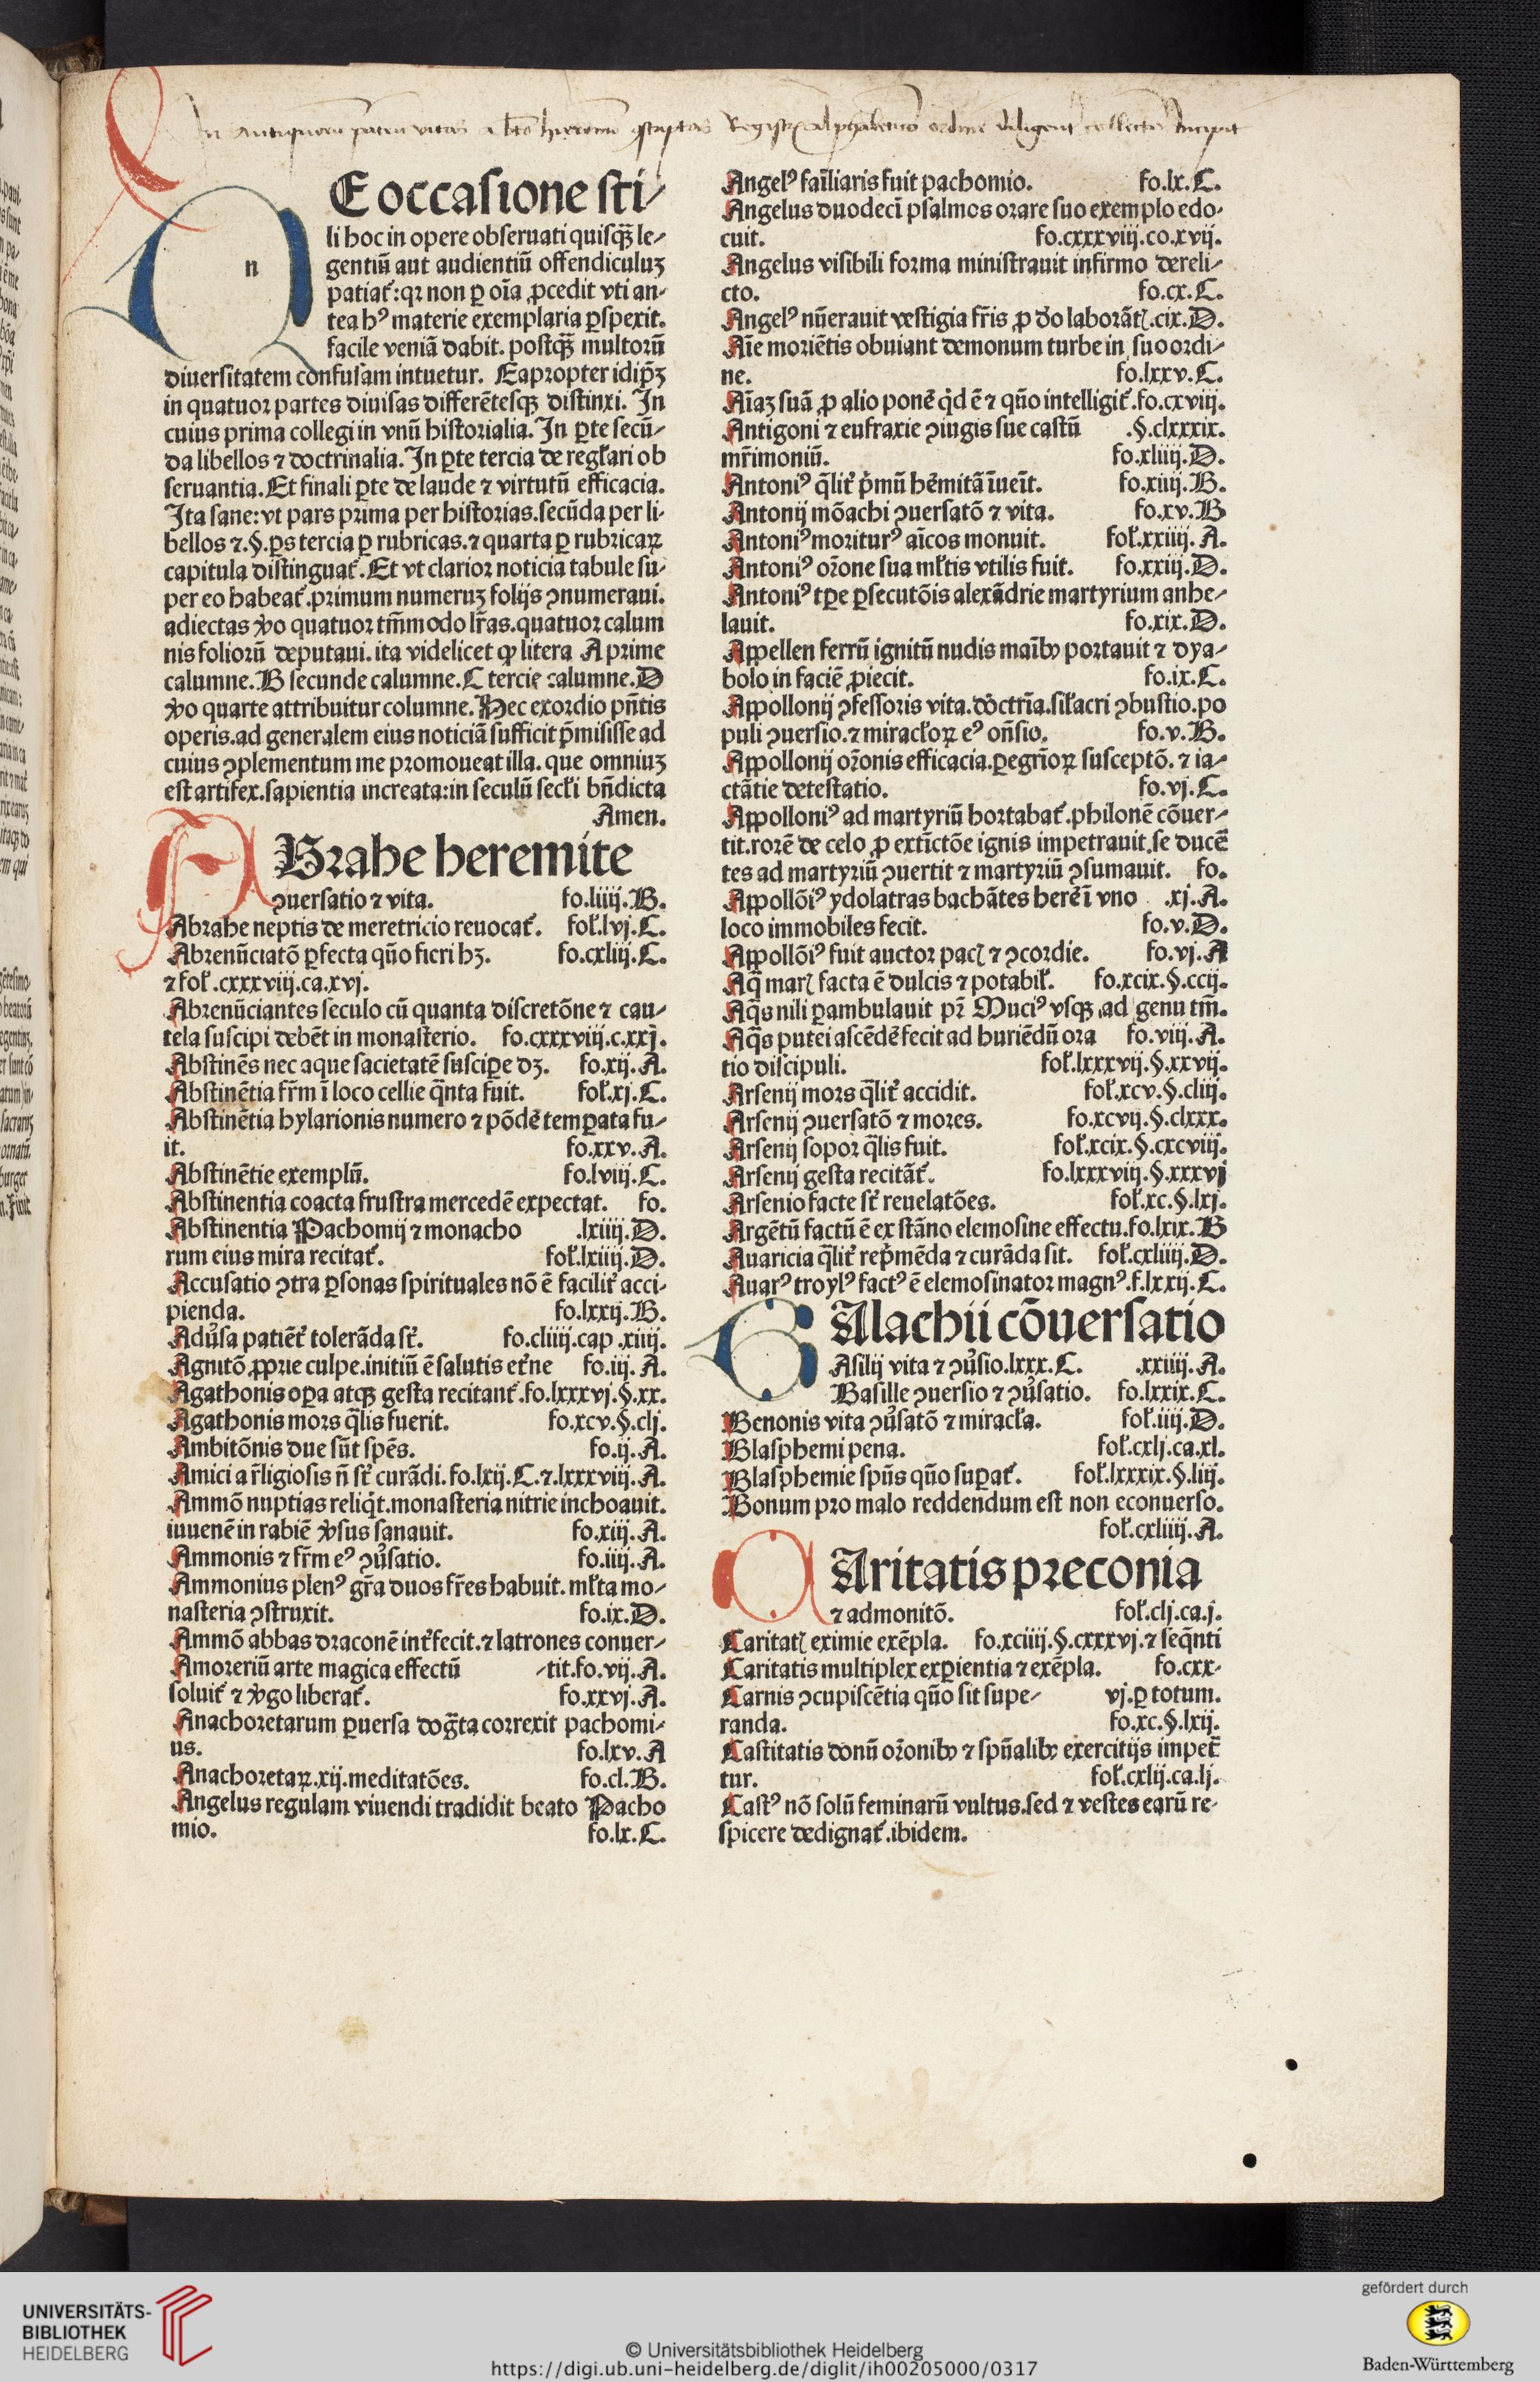 In antiquorum patrum vitas a bto hieronimo Registrum alphabetico ordine diligenter collectum Incipit
n
E occaſione ſti⸗
li hoc in opere obſeruati quiſqꝫ le⸗
gentiū aut audientiū offendiculuꝫ
patiat᷑: qꝛ non ꝑ oīa ꝓcedit vti an⸗
tea hꝰ materie exemplaria ꝑſpexit.
facile veniā dabit. poſtqꝫ̃ multorū
diuerſitatem confuſam intuetur. Eapropter idip̄ꝫ
in quatuor partes diuiſas differētesqꝫ diſtinxi. In
cuius prima collegi in vnū hiſtorialia. In ꝑte ſecū⸗
da libellos ⁊ doctrinalia. In ꝑte tercia de regl̄ari ob
ſeruantia. Et finali ꝑte de laude ⁊ virtutū efficacia.
Ita ſane: vt pars prima per hiſtorias. ſecūda per li⸗
bellos ⁊.§. ꝑs tercia ꝑ rubricas. ⁊ quarta ꝑ rubricaꝝ
capitula diſtinguat᷑. Et vt clarior noticia tabule ſu⸗
per eo habeat᷑. primum numeruꝫ folijs ꝯnumeraui.
adiectas ꝟo quatuor tm̄modo lr̄as. quatuor calum
nis foliorū deputaui. ita videlicet ꝙ litera A prime
calumne. B ſecunde calumne. C tercie calumne. D
ꝟo quarte attribuitur columne. Hec exordio pn̄tis
operis. ad generalem eius noticiā ſufficit p̄miſiſſe ad
cuius ꝯplementum me promoueat illa. que omniuꝫ
eſt artifex. ſapientia increata: in ſeculū ſecl̄i bn̄dicta
Amen.
ABrahe heremite
ꝯuerſatio ⁊ vita. fo.liiij.B.
Abrahe neptis de meretricio reuocat᷑. fol̄.lvj.C.
Abrenūciatō ꝑfecta quō fieri hꝫ. fo.cxliij.C.
⁊ fol̄.cxxxviij.ca.xvj.
Abrenūciantes ſeculo cū quanta diſcretōne ⁊ cau⸗
tela ſuſcipi debēt in monaſterio. fo.cxxxviij.c.xxj.
Abſtinēs nec aque ſacietatē ſuſciꝑe dꝫ. fo.xij.A.
Abſtinētia fr̄m ī loco cellie qn̄ta fuit. fol̄.xj.C.
Abſtinētia hylarionis numero ⁊ pōdē temꝑata fu⸗
it. fo.xxv.A.
Abſtinētie exemplū. fo.lviij.C.
Abſtinentia coacta fruſtra mercedē expectat. fo.
Abſtinentia Pachomij ⁊ monacho .lxiiij.D.
rum eius mira recitat᷑. fol̄.lxiiij.D.
Accuſatio ꝯtra ꝑſonas ſpirituales nō ē facilit᷑ acci⸗
pienda. fo.lxxij.B.
Adũſa patiēt᷑ tolerāda ſt᷑. fo.cliiij.cap.xiiij.
Agnitō ꝓprie culpe. initiū ē ſalutis et᷑ne fo.iij.A.
Agathonis oꝑa atqꝫ geſta recitant᷑.fo.lxxxvj.§.xx.
Agathonis mors qlis fuerit. fo.xcv.§.clj.
Ambitōnis due ſūt ſpēs. fo.ij.A.
Amici a r̄ligioſis n̄ ſt᷑ curādi. fo.lxij.C.⁊.lxxxviij.A.
Ammō nuptias reliqͥt. monaſteria nitrie inchoauit.
iuuenē in rabiē ꝟſus ſanauit. fo.xiij.A.
Ammonis ⁊ fr̄m eꝰ ꝯũſatio. fo.iiij.A.
Ammonius plenꝰ gr̄a duos fr̄es habuit. ml̄ta mo⸗
naſteria ꝯſtruxit. fo.ix.D.
Ammō abbas draconē int᷑fecit. ⁊ latrones conuer⸗
Amoreriū arte magica effectū ⸗tit.fo.vij.A.
ſoluit᷑ ⁊ ꝟgo liberat᷑. fo.xxvj.A.
Anachoretarum ꝑuerſa dog̃ta correxit pachomi⸗
us. fo.lxv.A
Anachoretaꝝ.xij.meditatōes. fo.cl.B.
Angelus regulam viuendi tradidit beato Pacho
mio. fo.lx.C.
Angelꝰ fai̅liaris fuit pachomio. fo.lx.C.
Angelus duodecī pſalmos orare ſuo exemplo edo⸗
cuit. fo.cxxxviij.co.xvij.
Angelus viſibili forma miniſtrauit infirmo dereli⸗
cto. fo.cx.C.
Angelꝰ nūerauit veſtigia fr̄is ꝓ do laborāt.cix.D.
Aīe moriētis obuiant demonum turbe in ſuo ordi⸗
ne. fo.lxxv.C.
Aīaꝫ ſuā ꝓ alio ponē qͥd ē ⁊ quō intelligit᷑.fo.cxviij.
Antigoni ⁊ eufraxie ꝯiugis ſue caſtū .§.clxxxix.
mr̄imoniū. fo.xliiij.D.
Antoniꝰ qlit᷑ pͥmū hēmitā īueīt. fo.xiiij.B.
Antonij mōachi ꝯuerſatō ⁊ vita. fo.xv.B
Antoniꝰ moriturꝰ aīcos monuit. fol̄.xxiiij.A.
Antoniꝰ or̄one ſua ml̄tis vtilis fuit. fo.xxiij.D.
Antoniꝰ tꝑe ꝑſecutōis alexādrie martyrium anhe⸗
lauit. fo.xix.D.
Appellen ferrū ignitū nudis maībꝰ portauit ⁊ dya⸗
bolo in faciē ꝓiecit. fo.ix.C.
Appollonij ꝯfeſſoris vita. doctrīa. ſil̄acri ꝯbuſtio. po
puli ꝯuerſio. ⁊ miracl̄oꝝ eꝰ on̄ſio. fo.v.B.
Appollonij or̄onis efficacia. ꝑegrīoꝝ ſuſceptō. ⁊ ia⸗
ctātie deteſtatio. fo.vj.C.
Appolloniꝰ ad martyriū hortabat᷑. philonē cōuer⸗
tit. rorē de celo ꝓ extīctōe ignis impetrauit. ſe ducē
tes ad martyriū ꝯuertit ⁊ martyriū ꝯſumauit. fo.
Appollōiꝰ ydolatras bachātes herē ī vno .xj.A.
loco immobiles fecit. fo.v.D.
Appollōiꝰ fuit auctor pac ⁊ ꝯcordie. fo.vj.A
Aq̄ mar facta ē dulcis ⁊ potabil̄. fo.xcix.§.ccij.
Aqs nili ꝑambulauit pr̄ Muciꝰ vſqꝫ ad genu tm̄.
Aqs putei aſcēdē fecit ad huriēdū ora fo.viij.A.
tio diſcipuli. fol̄.lxxxvij.§.xxvij.
Arſenij mors qlit᷑ accidit. fol̄.xcv.§.cliij.
Arſenij ꝯuerſatō ⁊ mores. fo.xcvij.§.clxxx.
Arſenij ſopor qlis fuit. fol̄.xcix.§.cxcviij.
Arſenij geſta recitāt᷑. fo.lxxxviij.§.xxxvj
Arſenio facte ſt᷑ reuelatōes. fol̄.xc.§.lxj.
Argētū factū ē ex ſtāno elemoſine effectu.fo.lxix.B
Auaricia qlit᷑ repͥmēda ⁊ curāda ſit. fol̄.cxliiij.D.
Auarꝰ troylꝰ factꝰ ē elemoſinator magnꝰ.f.lxxij.C.
BAlachii cōuerſatio
Aſilij vita ⁊ ꝯũſio.lxxx.C. .xxiiij.A.
Baſille ꝯuerſio ⁊ ꝯũſatio. fo.lxxix.C.
Benonis vita ꝯũſatō ⁊ miracl̄a. fol̄.iiij.D.
Blaſphemi pena. fol̄.cxlj.ca.xl.
Blaſphemie ſpūs quō ſuꝑat᷑. fol̄.lxxxix.§.liij.
Bonum pro malo reddendum eſt non econuerſo.
fol̄.cxliiij.A.
CAritatis preconia
⁊ admonitō. fol̄.clj.ca.j.
Caritat eximie exēpla. fo.xciiij.§.cxxxvj.⁊ ſeqn̄ti
Caritatis multiplex exꝑientia ⁊ exēpla. fo.cxx⸗
Carnis ꝯcupiſcētia quō ſit ſupe⸗ vj.ꝑ totum.
randa. fo.xc.§.lxij.
Caſtitatis donū or̄onibꝰ ⁊ ſpūalibꝰ exercitijs impet᷑
tur. fol̄.cxlij.ca.lj.
Caſtꝰ nō ſolū feminarū vultus. ſed ⁊ veſtes earū re⸗
ſpicere dedignat᷑. ibidem.
UNIVERSITÄTS-
BIBLIOTHEK
HEIDELBERG
© Universitätsbibliothek Heidelberg
https://digi.ub.uni-heidelberg.de/diglit/ih00205000/0317
gefördert durch
Baden-Württemberg